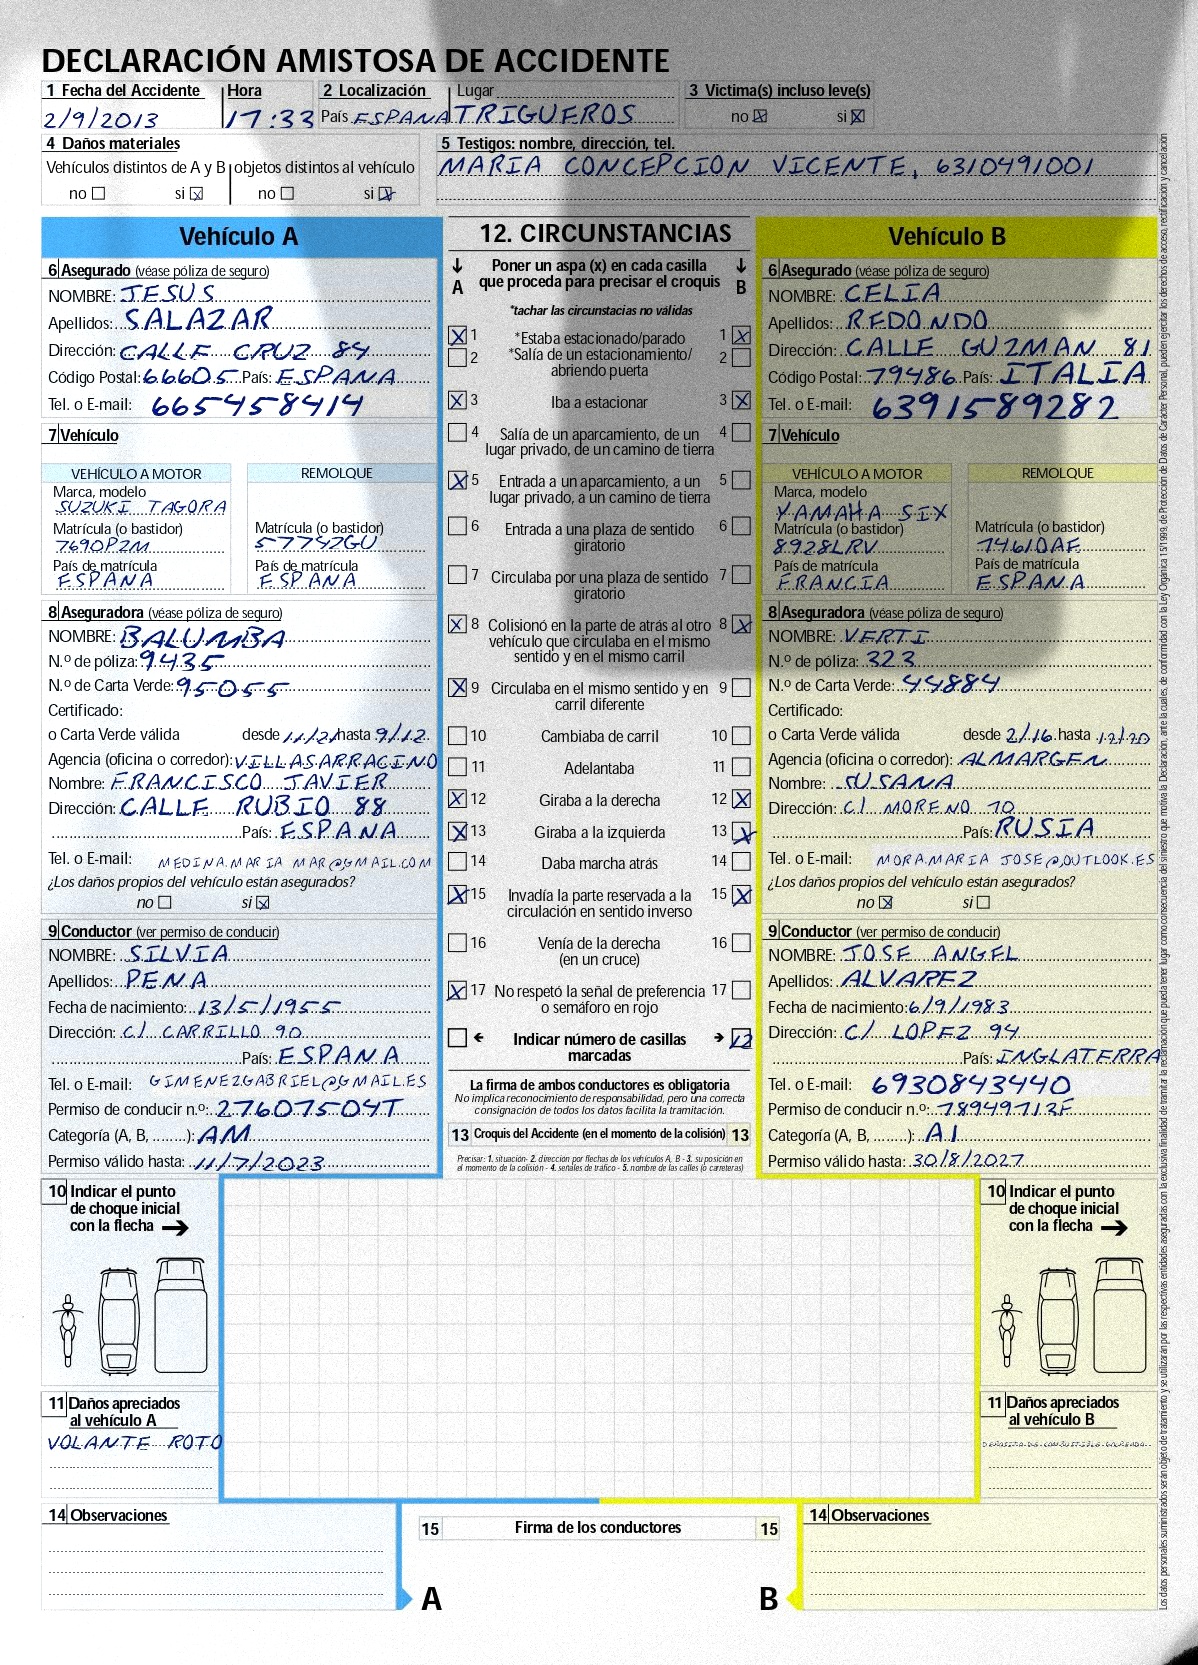 DECLARACIÓN AMISTOSA DE ACCIDENTE
1 Fecha del Accidente Hora 2 Localización Lugar 3 Victima(s) incluso leve(s)
2/9/2013 17:33 País ESPANA TRIGUEROS no si
4 Daños materiales 5 Testigos: nombre, dirección, tel.
Vehículos distintos de A y B objetos distintos al vehículo MARIA CONCEPCION VICENTE, 6310491001
no si no si
Vehículo A
6 Asegurado (véase póliza de seguro)
NOMBRE: JESUS
Apellidos: SALAZAR
Dirección: CALLE CRUZ 84
Código Postal: 66605 País: ESPANA
Tel. o E-mail: 665458414
7 Vehículo
VEHÍCULO A MOTOR REMOLQUE
Marca, modelo
SUZUKI TAGORA
Matrícula (o bastidor) Matrícula (o bastidor)
7690PZM 5775ZGU
País de matrícula País de matrícula
ESPANA ESPANA
8 Aseguradora (véase póliza de seguro)
NOMBRE: BALUMBA
N.º de póliza: 9435
N.º de Carta Verde: 95055
Certificado:
o Carta Verde válida desde 11/21 hasta 9/12
Agencia (oficina o corredor): VILLASARRACINO
Nombre: FRANCISCO JAVIER
Dirección: CALLE RUBIO 88
País: ESPANA
Tel. o E-mail: MEDINA.MARIA MAR@GMAIL.COM
¿Los daños propios del vehículo están asegurados?
no si
9 Conductor (ver permiso de conducir)
NOMBRE: SILVIA
Apellidos: PENA
Fecha de nacimiento: 13/5/1955
Dirección: C/ CARRILLO 90
País: ESPANA
Tel. o E-mail: GIMENEZGABRIEL@GMAIL.ES
Permiso de conducir n.º: 27607504T
Categoría (A, B, ........): AM
Permiso válido hasta: 11/7/2023
10 Indicar el punto
de choque inicial
con la flecha
11 Daños apreciados
al vehículo A
VOLANTE ROTO
14 Observaciones
12. CIRCUNSTANCIAS
A B
Poner un aspa (x) en cada casilla
que proceda para precisar el croquis
*tachar las circunstacias no válidas
1 *Estaba estacionado/parado 1
2 *Salía de un estacionamiento/ 2
abriendo puerta
3 Iba a estacionar 3
4 Salía de un aparcamiento, de un 4
lugar privado, de un camino de tierra
5 Entrada a un aparcamiento, a un 5
lugar privado, a un camino de tierra
6 Entrada a una plaza de sentido 6
giratorio
7 Circulaba por una plaza de sentido 7
giratorio
8 Colisionó en la parte de atrás al otro 8
vehículo que circulaba en el mismo
sentido y en el mismo carril
9 Circulaba en el mismo sentido y en 9
carril diferente
10 Cambiaba de carril 10
11 Adelantaba 11
12 Giraba a la derecha 12
13 Giraba a la izquierda 13
14 Daba marcha atrás 14
15 Invadía la parte reservada a la 15
circulación en sentido inverso
16 Venía de la derecha 16
(en un cruce)
17 No respetó la señal de preferencia 17
o semáforo en rojo
Indicar número de casillas 12
marcadas
La firma de ambos conductores es obligatoria
No implica reconocimiento de responsabilidad, pero una correcta
consignación de todos los datos facilita la tramitación.
13 Croquis del Accidente (en el momento de la colisión) 13
Precisar: 1. situación- 2. dirección por flechas de los vehículos A, B - 3. su posición en
el momento de la colisión - 4. señales de tráfico - 5. nombre de las calles (o carreteras)
15 Firma de los conductores 15
A B
Vehículo B
6 Asegurado (véase póliza de seguro)
NOMBRE: CELIA
Apellidos: REDONDO
Dirección: CALLE GUZMAN 81
Código Postal: 79486 País: ITALIA
Tel. o E-mail: 6391589282
7 Vehículo
VEHÍCULO A MOTOR REMOLQUE
Marca, modelo
YAMAHA SIX
Matrícula (o bastidor) Matrícula (o bastidor)
8928LRV 7461DAE
País de matrícula País de matrícula
FRANCIA ESPANA
8 Aseguradora (véase póliza de seguro)
NOMBRE: VERTI
N.º de póliza: 323
N.º de Carta Verde: 44884
Certificado:
o Carta Verde válida desde 2/16 hasta 12/20
Agencia (oficina o corredor): ALMARGEN
Nombre: SUSANA
Dirección: C/ MORENO 70
País: RUSIA
Tel. o E-mail: MORA.MARIA JOSE@OUTLOOK.ES
¿Los daños propios del vehículo están asegurados?
no si
9 Conductor (ver permiso de conducir)
NOMBRE: JOSE ANGEL
Apellidos: ALVAREZ
Fecha de nacimiento: 6/9/1983
Dirección: C/ LOPEZ 94
País: INGLATERRA
Tel. o E-mail: 6930843440
Permiso de conducir n.º: 78949713F
Categoría (A, B, ........): A1
Permiso válido hasta: 30/8/2027
10 Indicar el punto
de choque inicial
con la flecha
11 Daños apreciados
al vehículo B
14 Observaciones
Los datos personales suministrados serán objeto de tratamiento y se utilizarán por las respectivas entidades aseguradas con la exclusiva finalidad de tramitar la reclamación que pueda tener lugar como consecuencia del siniestro que motiva la Declaración, ante la cuales, de conformidad con la Ley Orgánica 15/1999, de Protección de Datos de Carácter Personal, pueden ejercitar los derechos de acceso, rectificación y cancelación